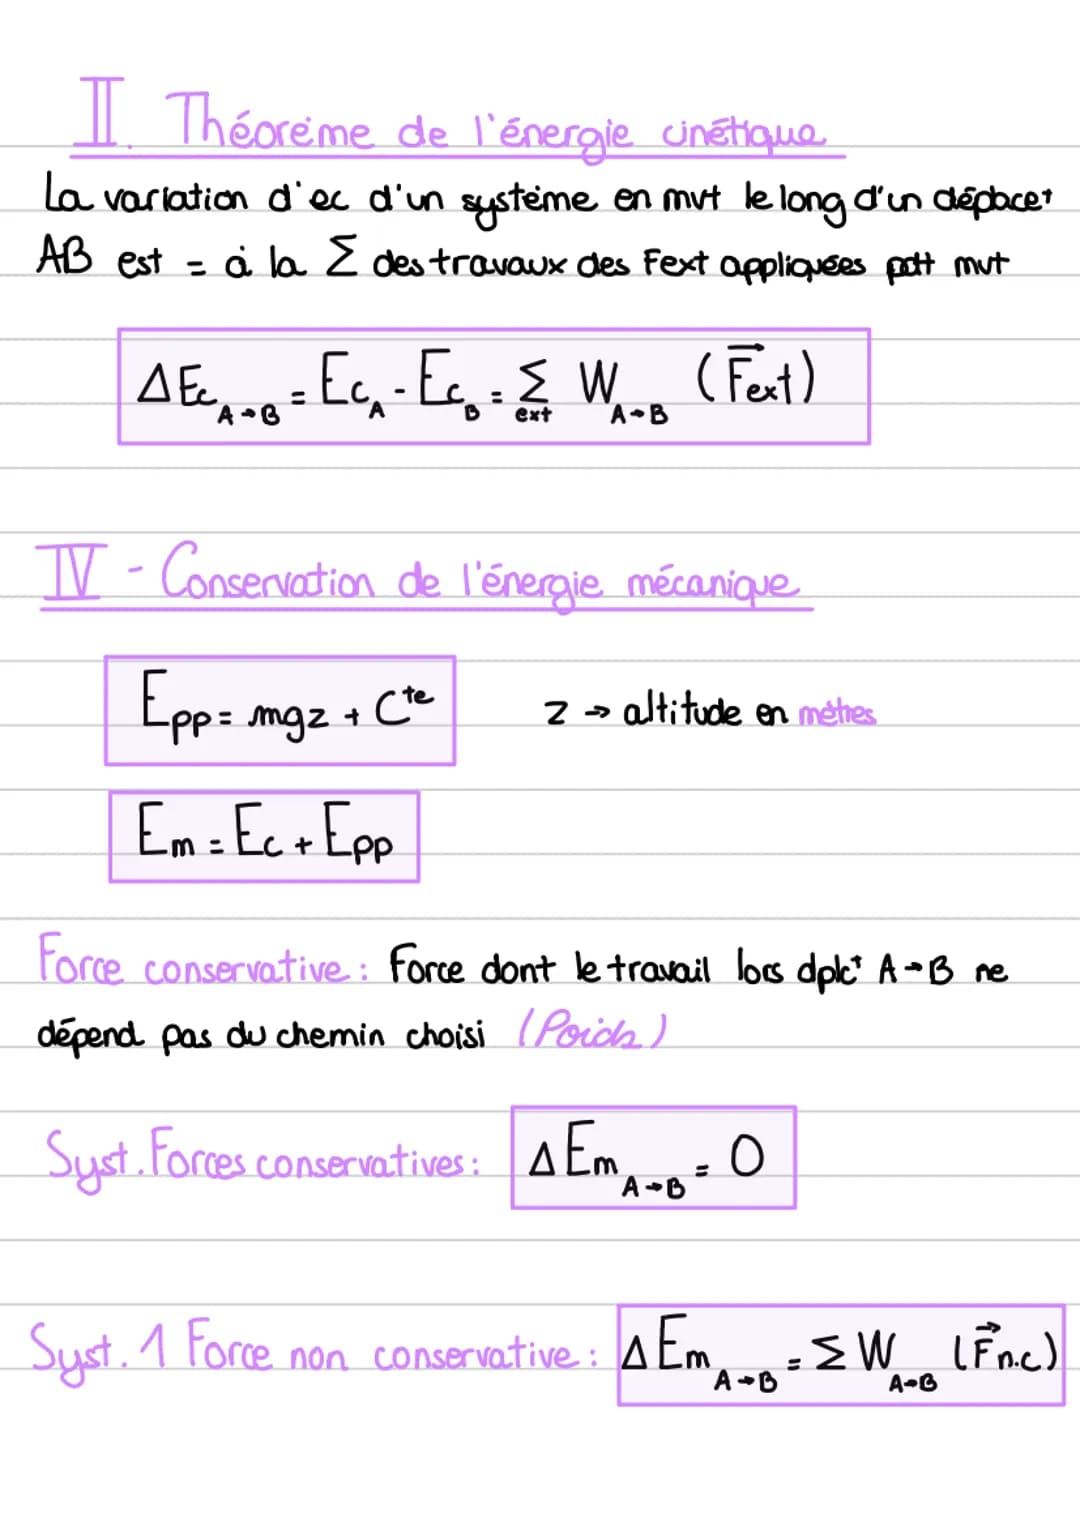 II. Théorème de l'énergie cinétique
La variation d'ec d'un système en mvt le long d'un déplacet
AB est = à la Σ des travaux des Fext appliquées pdt mvt
ΔEc A→B = Ec A - Ec B = Σ ext W A→B (F⃗ext)
IV - Conservation de l'énergie mécanique
Epp = mgz + Cte
z → altitude en mètres
Em = Ec + Epp
Force conservative : Force dont le travail lors dplct A→B ne
dépend pas du chemin choisi (Poids)
Syst. Forces conservatives : ΔEm A→B = 0
Syst. 1 Force non conservative : ΔEm A→B = ΣW A→B (F⃗n.c)